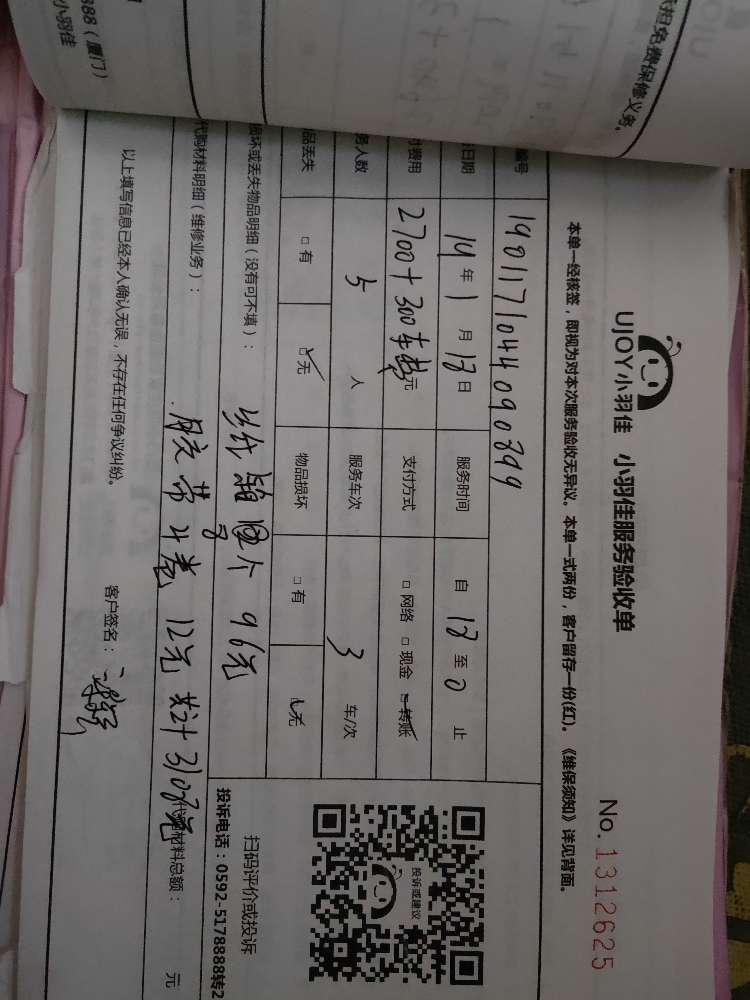 888（厦门）
小羽佳
担免费保修义务。
UJOY小羽佳 小羽佳服务验收单
No. 1312625
本单一经核签，即视为对本次服务验收无异议。本单一式两份，客户留存一份(红)。《维保须知》详见背面。
编号 1901171044090899
日期 19年1月18日 服务时间 自18至0止
费用 2700+300车费元 支付方式 □网络 □现金 □转账
务人数 5人 服务车次 3车/次
品丢失 □有 □无 物品损坏 □有 □无
损坏或丢失物品明细（没有可不填）：
纸箱 个 96元
代购材料明细（维修业务）：
胶带4卷 12元 共计3108元
代购材料总额： 元
以上填写信息已经本人确认无误，不存在任何争议纠纷。
客户签名：
投诉或建议
扫码评价或投诉
投诉电话：0592-5178888转2